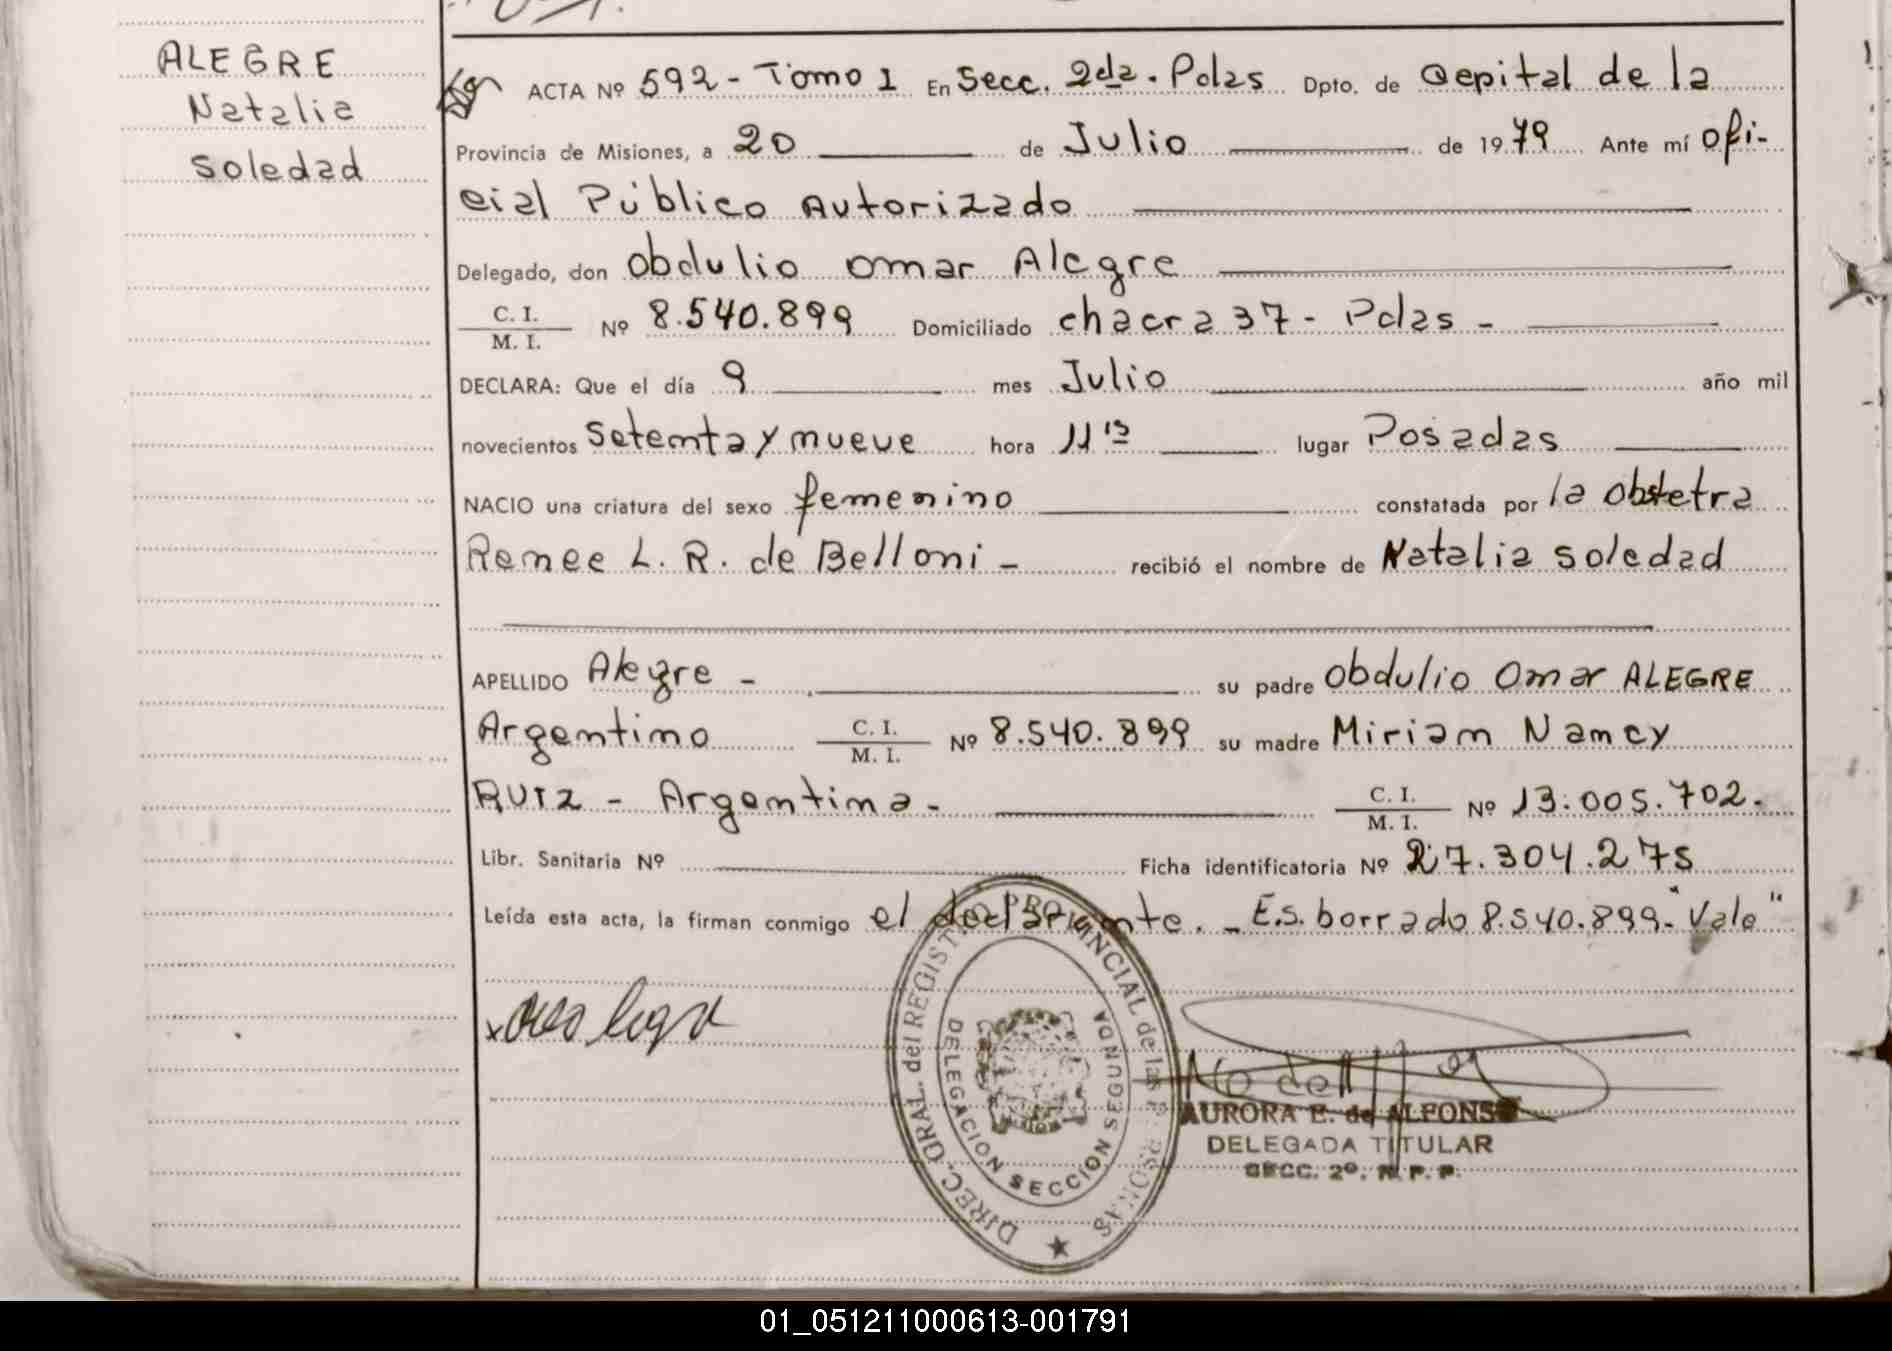 ALEGRE
Natalia
Soledad
ACTA Nº 592 - Tomo 1 En Secc. 2da. Pdas Dpto. de Capital de la
Provincia de Misiones, a 20 de Julio de 1979 Ante mí ofi-
cial Público Autorizado
Delegado, don Obdulio Omar Alegre
C. I.
M. I.
Nº 8.540.899 Domiciliado chacra 37 - Pdas -
DECLARA: Que el día 9 mes Julio año mil
novecientos Setenta y nueve hora 11 15 lugar Posadas
NACIO una criatura del sexo femenino constatada por la obstetra
Renee L. R. de Belloni - recibió el nombre de Natalia Soledad
APELLIDO Alegre - su padre Obdulio Omar ALEGRE
Argentino C. I. Nº 8.540.899 su madre Miriam Nancy
M. I.
RUIZ - Argentina - C. I. Nº 13.005.702.
M. I.
Libr. Sanitaria Nº Ficha identificatoria Nº 27.304.275
Leída esta acta, la firman conmigo el declarante. - E.s. borrado 8.540.899- "Vale"
DIREC. GRAL. del REGISTRO PROVINCIAL de las PERSONAS
DELEGACION SECCION SEGUNDA
AURORA E. de ALFONSO
DELEGADA TITULAR
SECC. 2º. R. P. P.
01_051211000613-001791